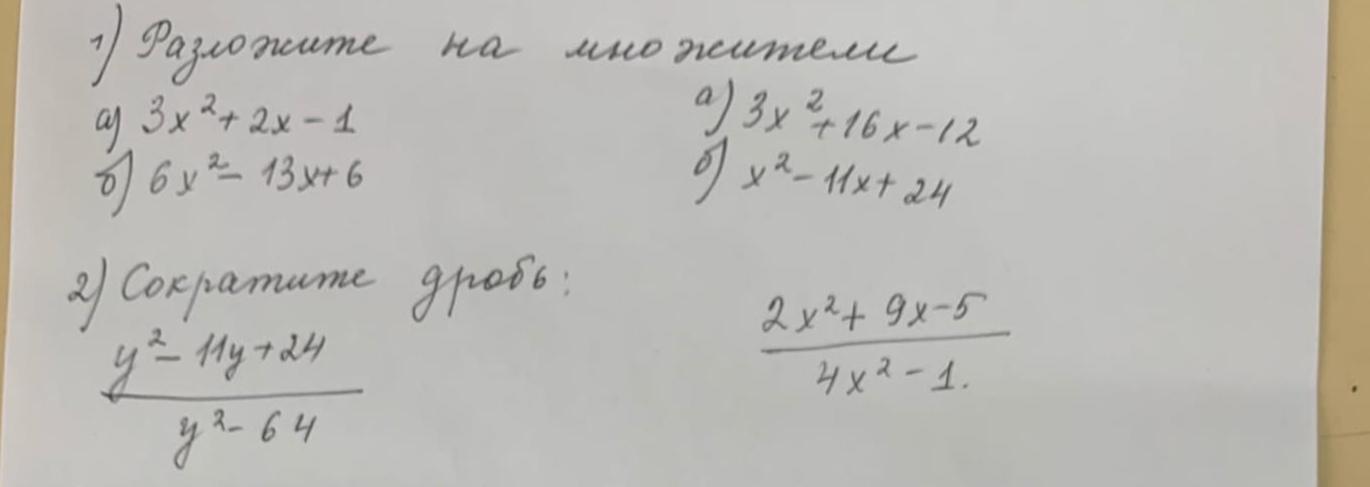 1) Разложите на множители
а) 3x² + 2x - 1
б) 6x² - 13x + 6
а) 3x² + 16x - 12
б) x² - 11x + 24
2) Сократите дробь:
y² - 11y + 24
y² - 64
2x² + 9x - 5
4x² - 1.